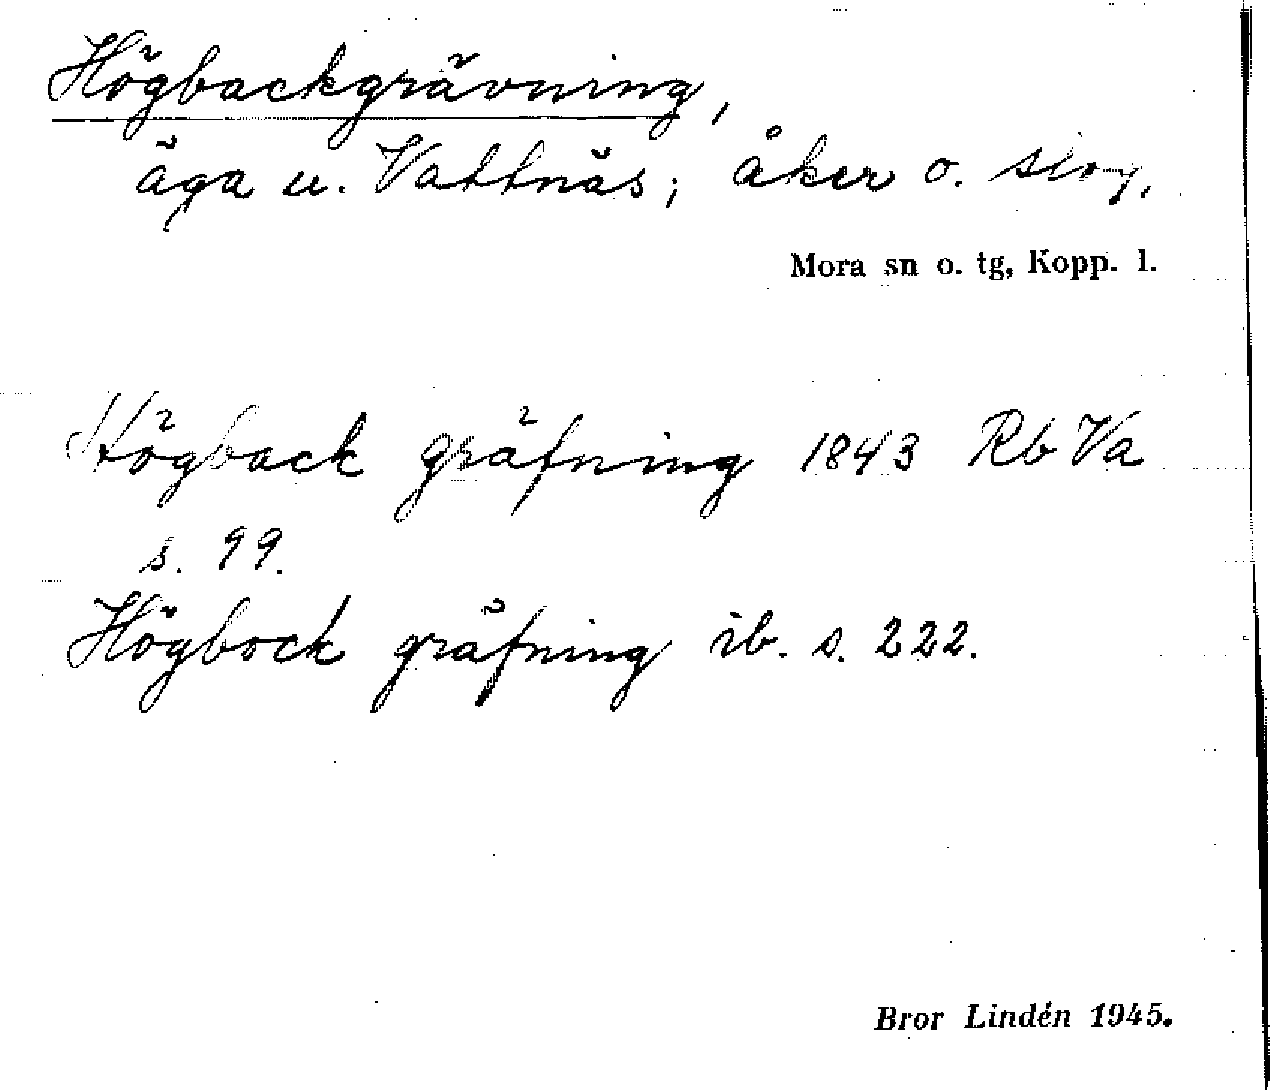 Högbackgrävning,
äga u. Vattnäs; åker o. slog.
Mora sn o. tg, Kopp. l.
Högback gräfning 1843 Rb Va
s. 99.
Högbock gräfning ib. s. 222.
Bror Lindén 1945.